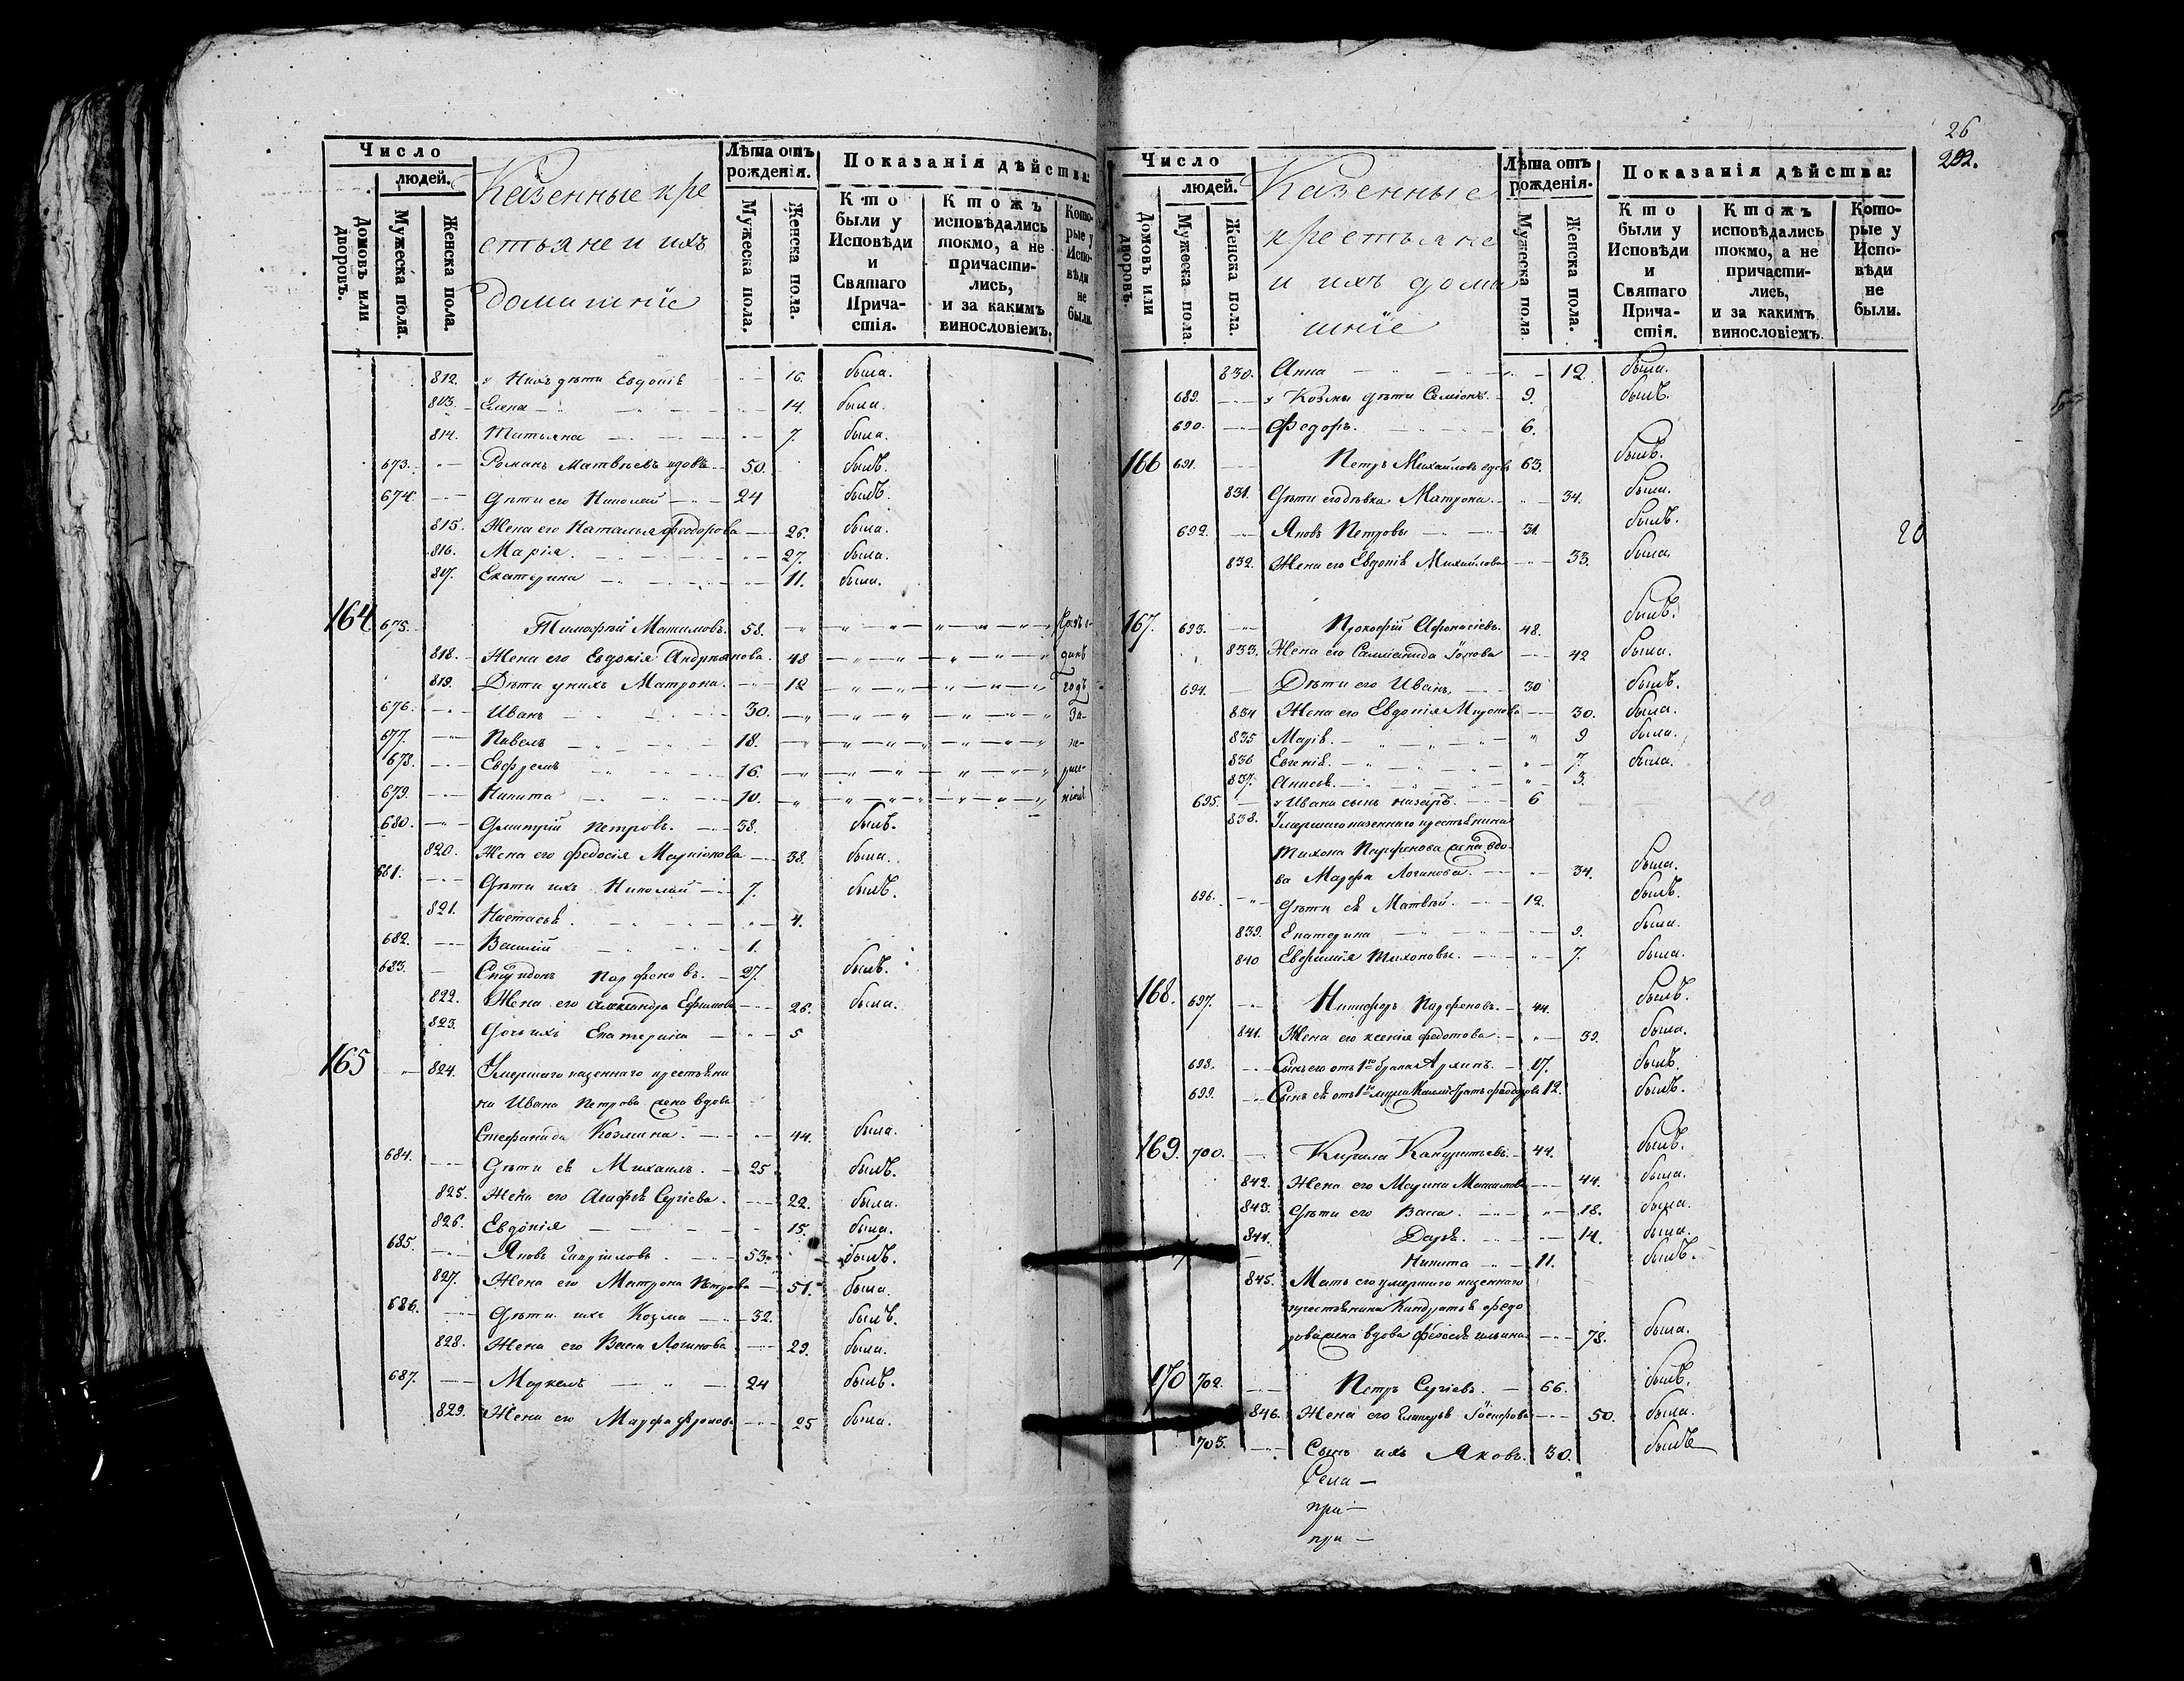 Число
людей.
Домовъ или дворовъ.
Мужеска пола.
Женска пола.
Казенные кре
стьяне и ихъ
домашніе
Лѣта отъ рожденія.
Мужеска пола.
Женска пола.
Показанія дѣйства:
Кто были у Исповѣди и Святаго Причастія.
Ктожъ исповѣдались токмо, а не причастились, и за какимъ винословіемъ.
Которые у Исповѣди не были.
812. у Нихъ дѣти Евдокія 16. была.
813. Елена 14. была.
814. Татьяна 7. была.
673. Романъ Матвѣевъ вдовъ 50. былъ.
674. Дѣти его Николай 24 былъ.
815. Жена его Наталья Феодорова 26. была.
816. Марія. 27. была.
817. Екатерина 11. была.
164 675. Тимофѣй Максимовъ. 58.
818. Жена его Евдокія Андреянова. 48 динъ
819. Дѣти у нихъ Матрона. 12 годъ
676. Иванъ 30. За-
677. Павелъ 18.
678. Ефремъ 16.
679. Никита 10.
680. Дмитрій Петровъ. 38. былъ.
820. Жена его Федосія 38. была.
681. Дѣти ихъ Николай 7. былъ.
821. Настасья. 4.
682. Василій 1.
683. Спиридонъ Парфеновъ. 27. былъ.
822. Жена его Александра Ефимова 26. была.
823. Дочь ихъ Екатерина 5
165 824. Умершаго казеннаго крестьяни
на Ивана Петрова жена вдова
Стефанида Козмина. 44. была.
684. Дѣти ея Михаилъ. 25 былъ.
825. Жена его Агафья Сергіева. 22. была.
826. Евдокія 15. была.
685. Яковъ Гавриловъ. 53. былъ.
827. Жена его Матрона Петрова 51. была.
686. Дѣти ихъ Козма 32. былъ.
828. Жена его Васса Логинова 29. была.
687. Маркелъ 24 былъ.
829. Жена его Марфа Фролова 25 была.
26
202.
Число
людей.
Домовъ или дворовъ.
Мужеска пола.
Женска пола.
Казенные
крестьяне
и ихъ дома
шніе
Лѣта отъ рожденія.
Мужеска пола
Женска пола.
Показанія дѣйства:
Кто были у Исповѣди и Святаго Причастія.
Ктожъ исповѣдались токмо, а не причастились, и за какимъ винословіемъ.
Которые у Исповѣди не были.
830. Анна 12 была.
689. у Козмы дѣти Семіонъ. 9. былъ.
690. Федоръ. 6.
166 691. Петръ Михайловъ вдовъ 63. былъ.
831. Дѣти его дѣвка Матрона. 34. была.
692. Яковъ Петровы 31. былъ.
20
832. Жена его Евдокія Михайлова 33. была.
167. 693. Прокофій Афонасіевъ. 48. былъ.
833. Жена его 42 была.
694. Дѣти его Иванъ, 30 былъ.
834 Жена его Евдокія Миронова 30. была.
835 Марія. 9 была.
836 Евгенія. 7. была.
837. Анисья. 3.
695. у Ивана сынъ Назаръ. 6
838. Умершаго казеннаго крестьянина
Тихона Парфенова жена вдо
ва Марфа Логинова. 34. была.
696. Дѣти ея Матвѣй. 12. былъ.
839. Екатерина 9. была.
840 Евфимія Тихоновы. 7. была.
168. 697. Никифоръ Парфеновъ. 44. былъ.
841. Жена его Ксенія Федотова. 39. была.
698. Сынъ его отъ 1го брака Архипъ. 17. былъ.
699. Сынъ ея отъ 1го мужа Каллистратъ Феодоровъ 12. былъ.
169. 700. Кирила Кандратьевъ. 44. былъ.
842. Жена его Марина Максимова 44. была.
843. Дѣти его Васса. 18. была.
844. Дарья. 14. была.
Никита 11. былъ.
845. Мать его умершаго казеннаго
крестьянина Кандратья Федо
рова жена вдова Федосья Ильина 78. была.
170 702. Петръ Сергіевъ. 66. былъ.
846. Жена его Гликерья Іосифова 50. была.
703. Сынъ ихъ Яковъ. 30. былъ
Села —
при —
при —